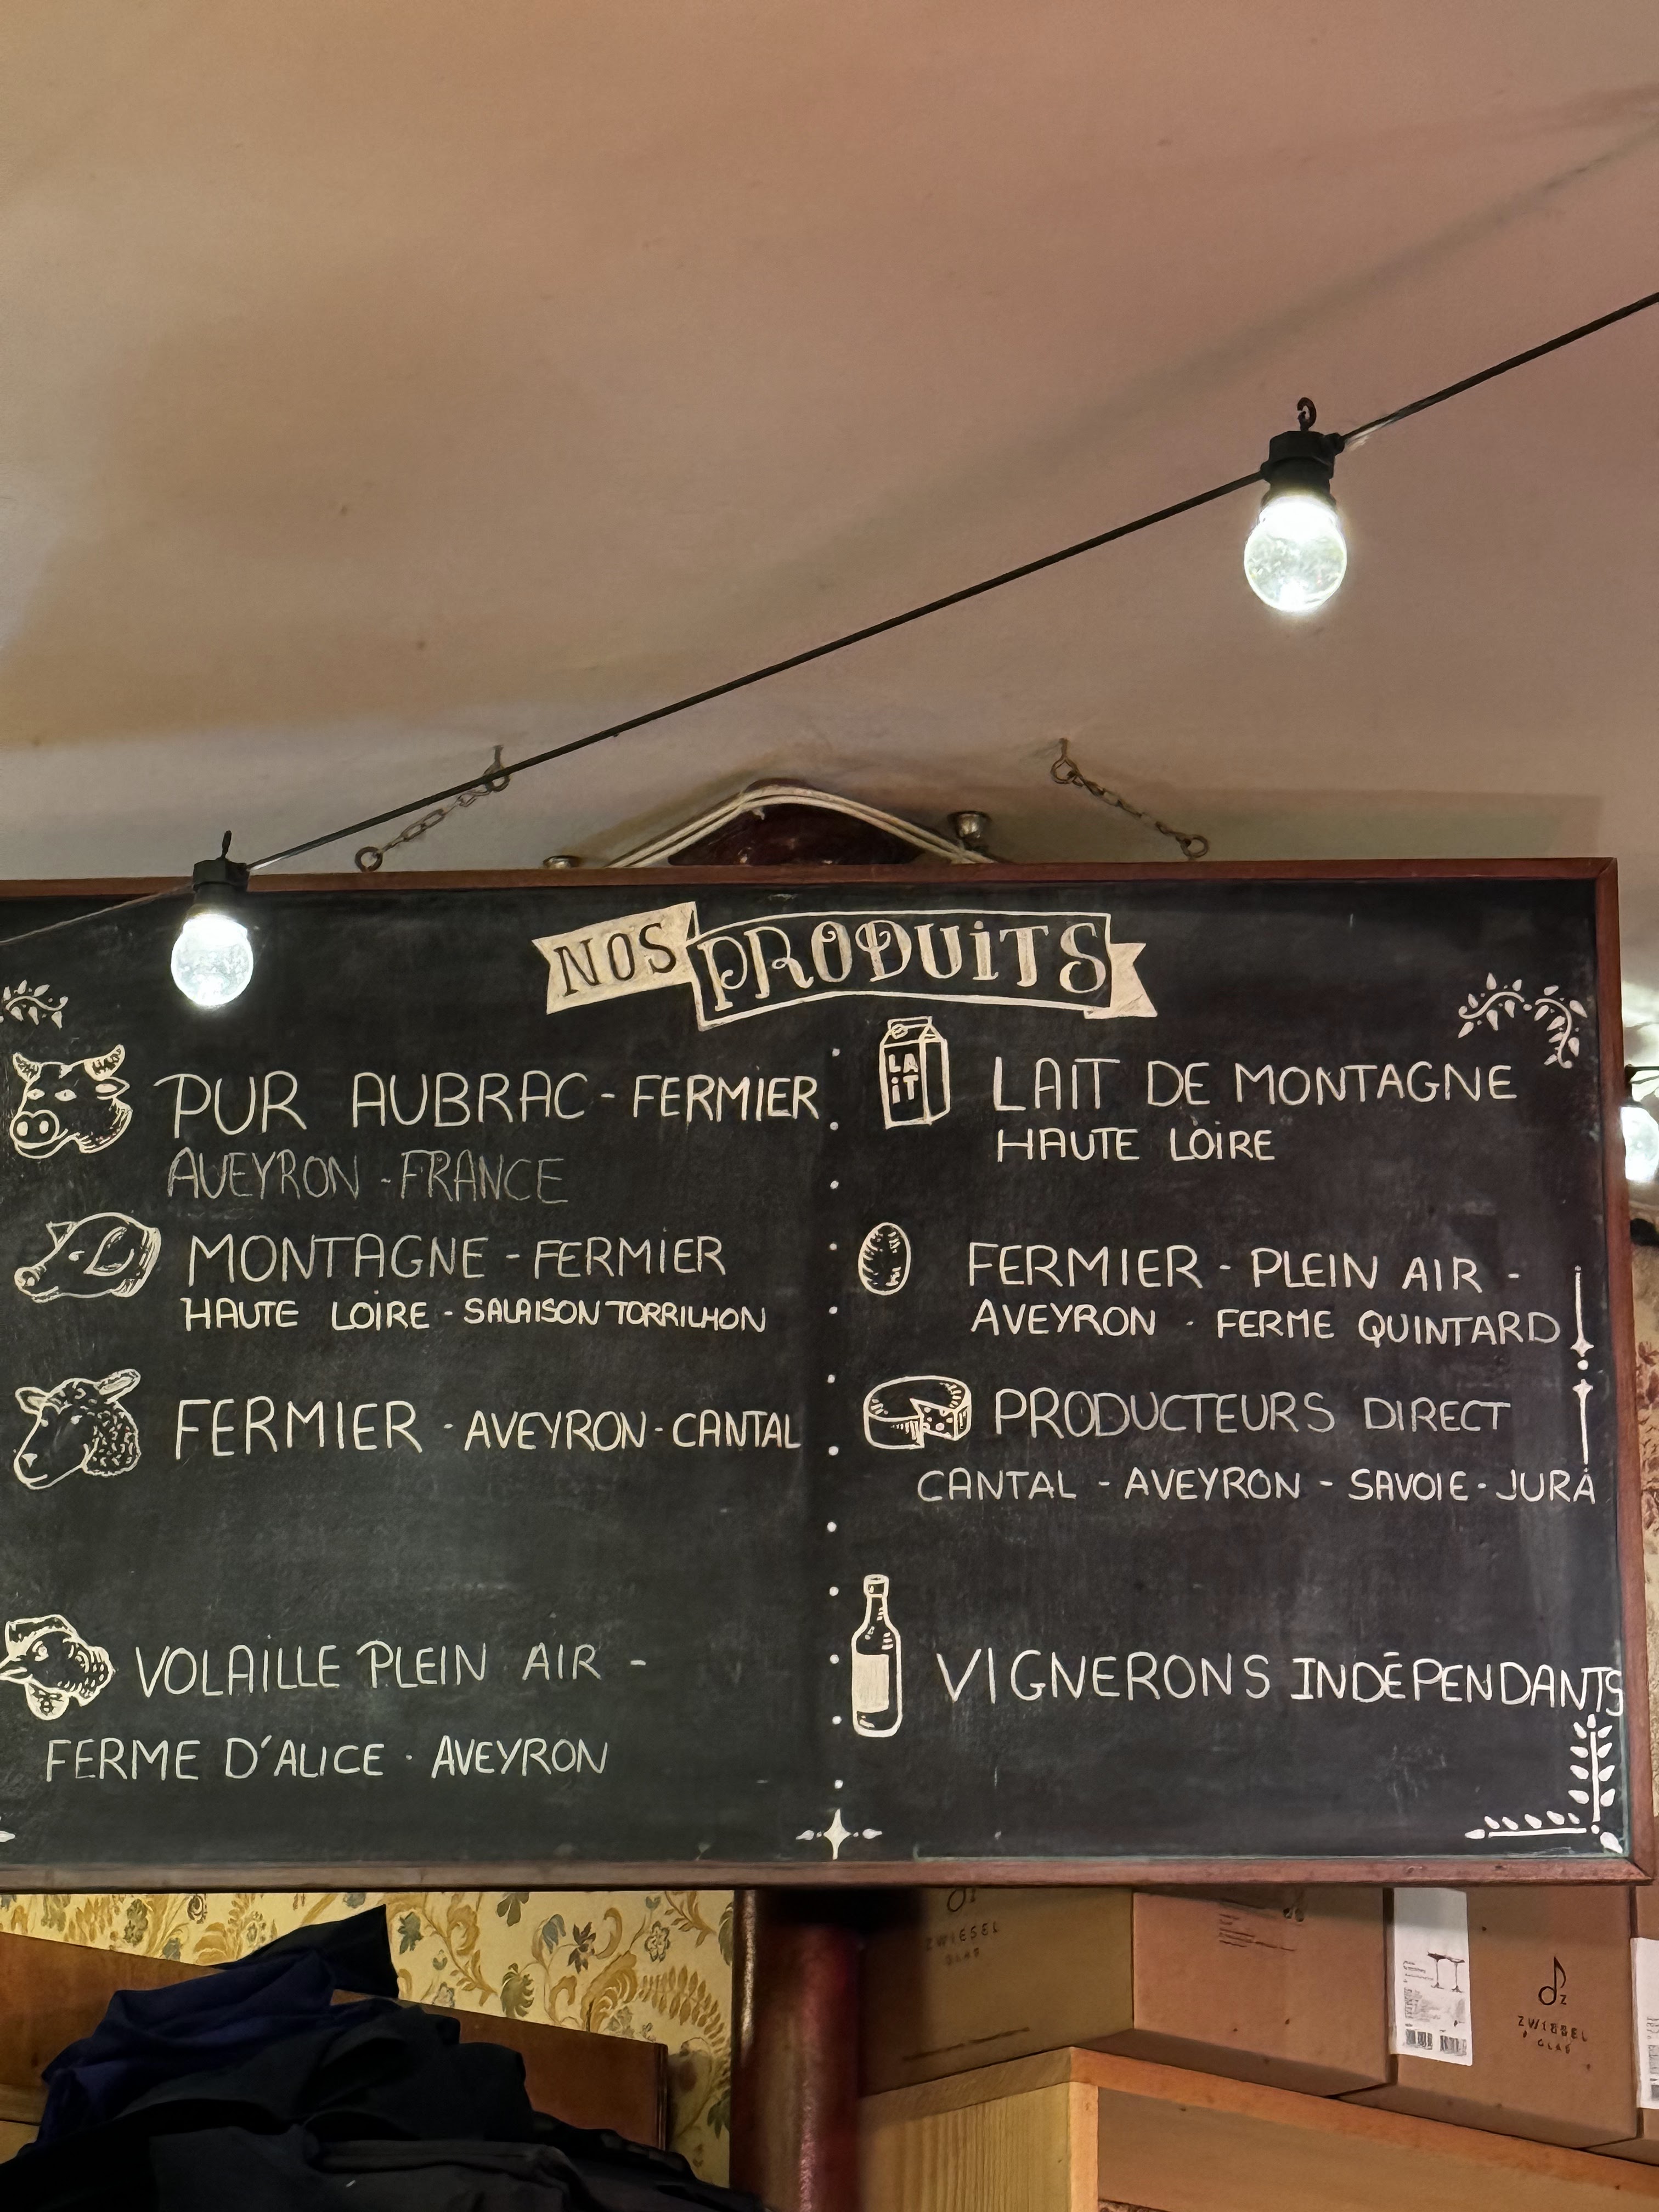 NOS PRODUITS
PUR AUBRAC - FERMIER
AVEYRON - FRANCE
MONTAGNE - FERMIER
HAUTE LOIRE - SALAISON TORRILHON
FERMIER - AVEYRON - CANTAL
VOLAILLE PLEIN AIR -
FERME D'ALICE · AVEYRON
LAIT
LAIT DE MONTAGNE
HAUTE LOIRE
FERMIER - PLEIN AIR -
AVEYRON · FERME QUINTARD
PRODUCTEURS DIRECT
CANTAL - AVEYRON - SAVOIE - JURA
VIGNERONS INDÉPENDANTS
ZWIESEL
GLAS
ZWIESEL
GLAS